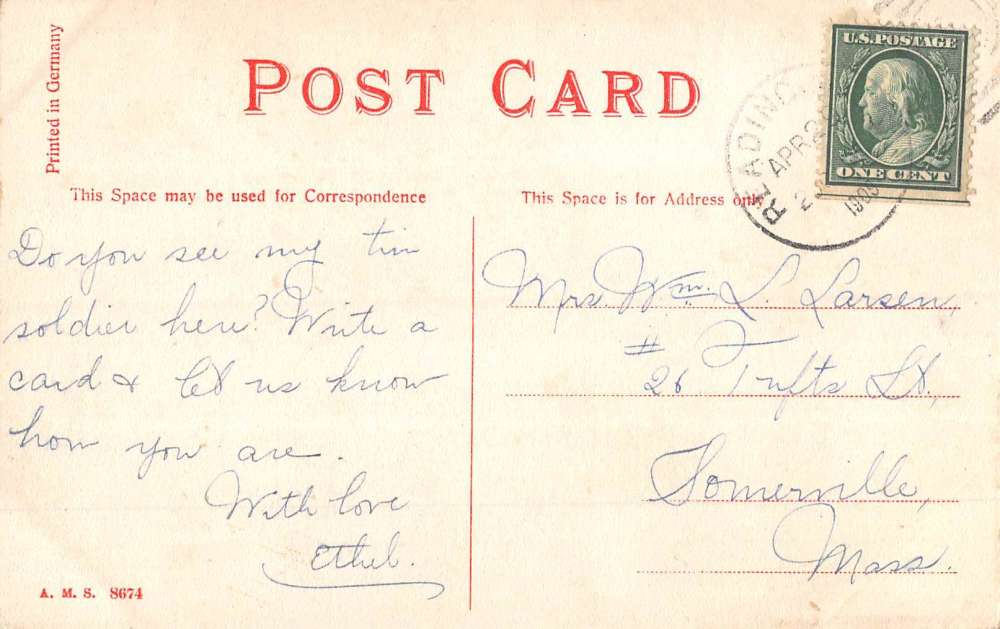 Printed in Germany
POST CARD
U.S. POSTAGE
ONE CENT
READING
APR 2
2
1909
This Space may be used for Correspondence
This Space is for Address only
Do you see my tin
soldier here? Write a
card & let us know
how you are.
With love
Ethel.
Mrs. Wm. L. Larsen,
# 26 Tufts St.,
Somerville,
Mass.
A. M. S. 8674